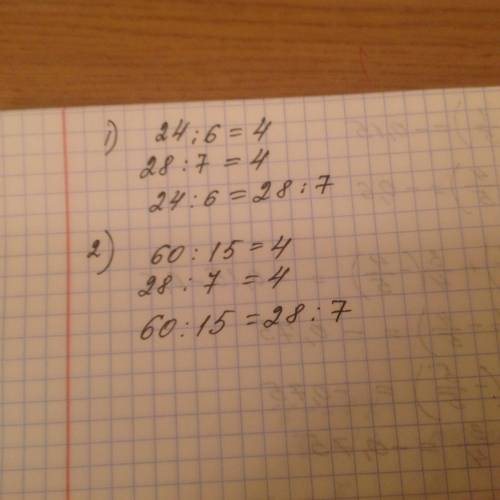 1) 24 : 6 = 4
28 : 7 = 4
24 : 6 = 28 : 7
2) 60 : 15 = 4
28 : 7 = 4
60 : 15 = 28 : 7